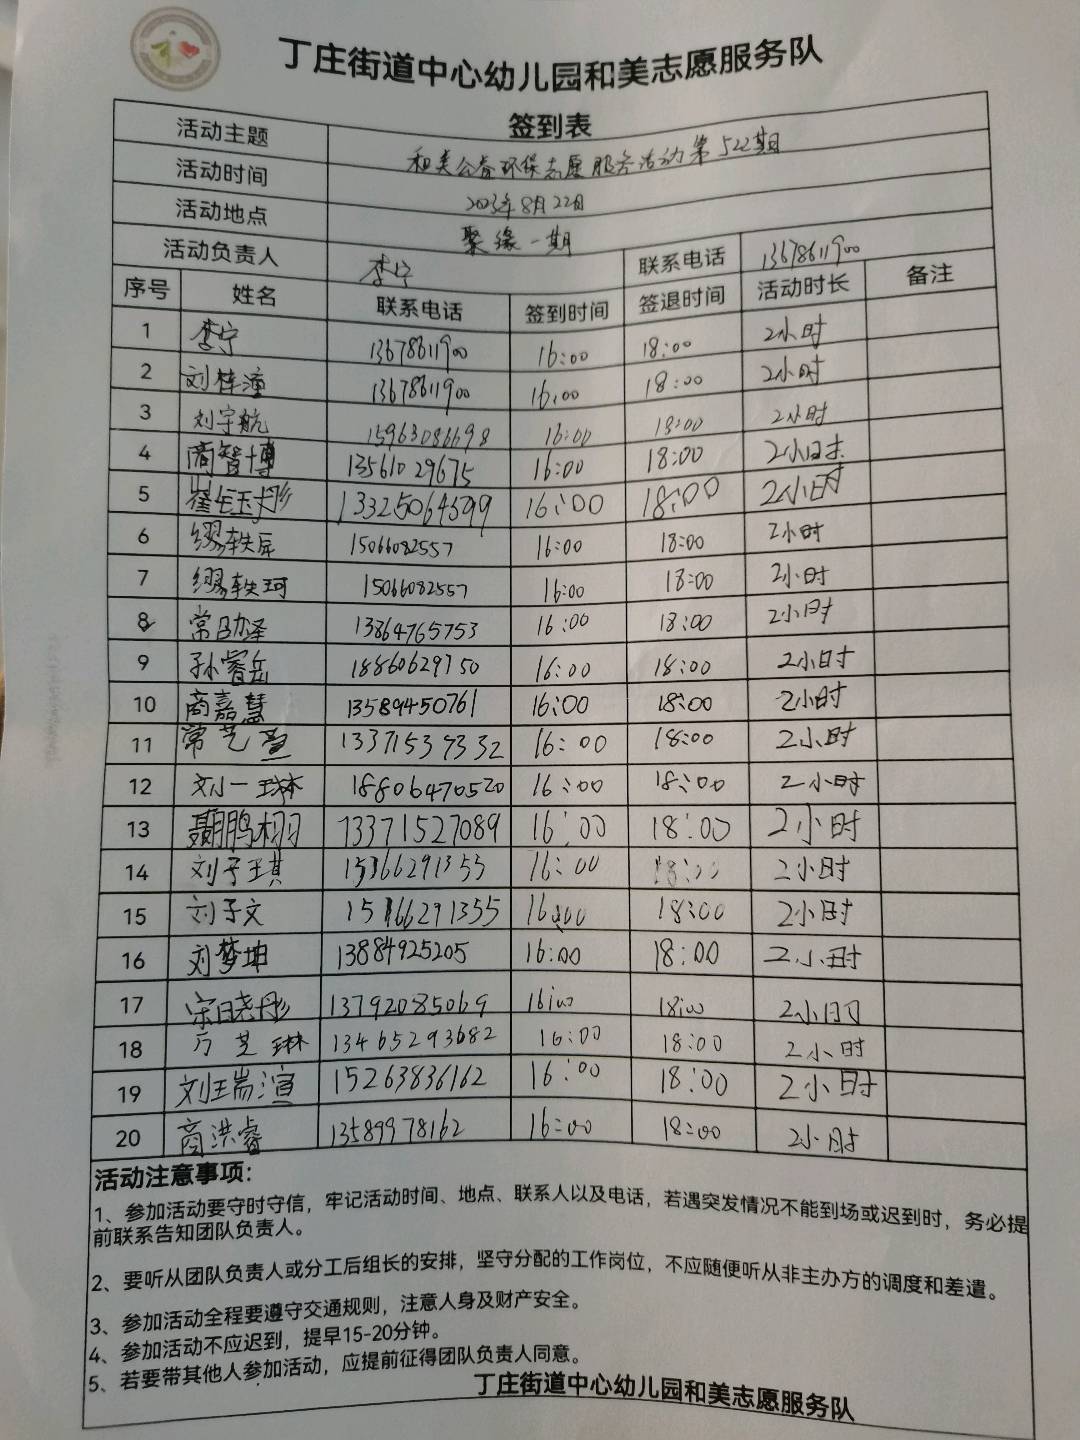 丁庄街道中心幼儿园和美志愿服务队
签到表
活动主题 和美公益环保志愿服务活动第522期
活动时间 2023年8月22日
活动地点 聚缘一期
活动负责人 李宁 联系电话 13678611900
序号 姓名 联系电话 签到时间 签退时间 活动时长 备注
1 李宁 13678611900 16:00 18:00 2小时
2 刘梓潼 13678611900 16:00 18:00 2小时
3 刘宇航 15963086698 16:00 18:00 2小时
4 商智博 13561029675 16:00 18:00 2小时
5 崔钰彤 13325064599 16:00 18:00 2小时
6 缪轶岸 15066082557 16:00 18:00 2小时
7 缪轶珂 15066082557 16:00 18:00 2小时
8 常励泽 13864765753 16:00 18:00 2小时
9 孙睿岳 18860629750 16:00 18:00 2小时
10 商嘉慧 13589450761 16:00 18:00 2小时
11 常艺萱 13371539332 16:00 18:00 2小时
12 刘一琳 18806470520 16:00 18:00 2小时
13 聂鹏栩 13371527089 16:00 18:00 2小时
14 刘子琪 15166291355 16:00 18:00 2小时
15 刘子文 15166291355 16:00 18:00 2小时
16 刘梦坤 13884925205 16:00 18:00 2小时
17 宋晓彤 13792085069 16:00 18:00 2小时
18 万芝琳 13465293682 16:00 18:00 2小时
19 刘瑞渲 15263836162 16:00 18:00 2小时
20 商洪睿 13589978162 16:00 18:00 2小时
活动注意事项:
1、参加活动要守时守信，牢记活动时间、地点、联系人以及电话，若遇突发情况不能到场或迟到时，务必提
前联系告知团队负责人。
2、要听从团队负责人或分工后组长的安排，坚守分配的工作岗位，不应随便听从非主办方的调度和差遣。
3、参加活动全程要遵守交通规则，注意人身及财产安全。
4、参加活动不应迟到，提早15-20分钟。
5、若要带其他人参加活动，应提前征得团队负责人同意。
丁庄街道中心幼儿园和美志愿服务队